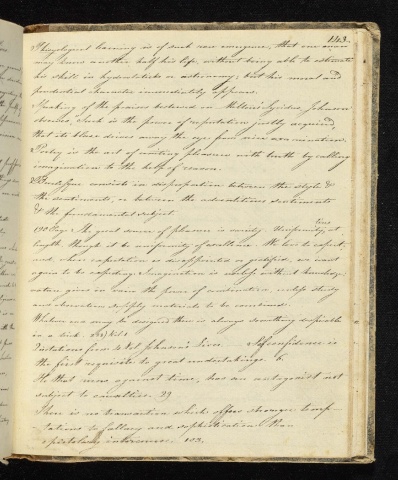 143
Physiological learning is of such rare emergence, that one man
may know another half his life, without being able to estimate
his skill in hydrostatics or astronomy; but his moral and
prudential character immediately appears.
Speaking of the praises bestowed on Milton's Lycidas, Johnson
observes, Such is the power of reputation justly acquired,
that its blaze drives away the eye from nice examination.
Poetry is the art of uniting pleasure with truth by calling
imagination to the help of reason.
Burlesque consists in disproportion between the style &
the sentiments, or between the adventitious sentiments
& the fundamental subject.
The great source of pleasure is variety. Uniformity must tire at
length though it be uniformity of excellence. We love to expect,
and when expectation is disappointed or gratified, we want
again to be expecting. Imagination is useless without knowledge,
nature gives in vain the power of combination, unless study
and observation supply materials to be combined.
Whatever may be designed there is always something despicable
in a trick.
Quotations from 4 Vol Johnson's Lives. Self confidence is
the first requisite to great undertakings. 6.
He that runs against time, has an antagonist not
subject to casualties. 39
There is no transaction which offers stronger temp-
tations to fallacy and sophistication than
epistolary intercourse. 103.